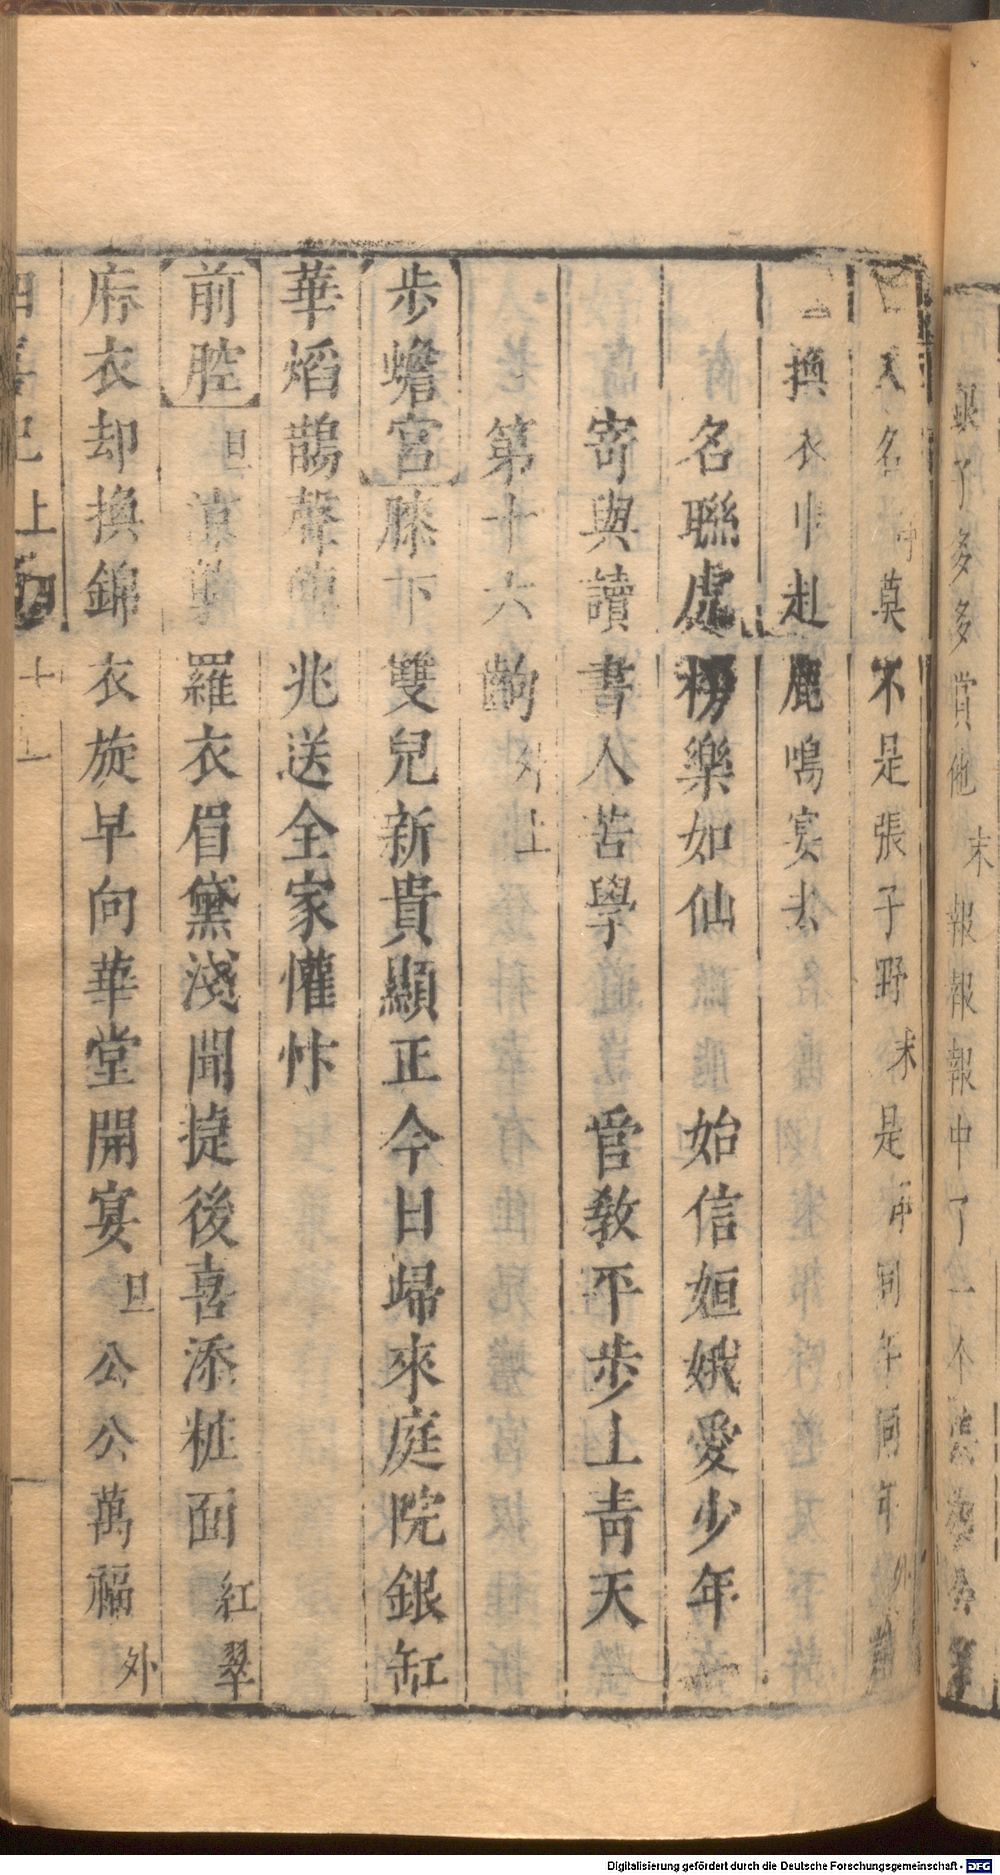 銀子多多賞他 末 報報報中了
人名 莫不是張子野 末 是 同年同年 外
換衣巾赴鹿鳴宴去
名聯虎榜樂如仙 始信姮娥愛少年
寄與讀書人苦學 管教平步上青天
第十六齣 外上
步蟾宮 膝下雙兒新貴顯正今日歸來庭院銀缸
華熖鵲聲傳兆送全家懽忭
前腔 旦 羅衣眉黛淺聞捷後喜添粧面 紅翠
麻衣却換錦衣旋早向華堂開宴 旦 公公萬福 外
四喜記上
Digitalisierung gefördert durch die Deutsche Forschungsgemeinschaft - DFG